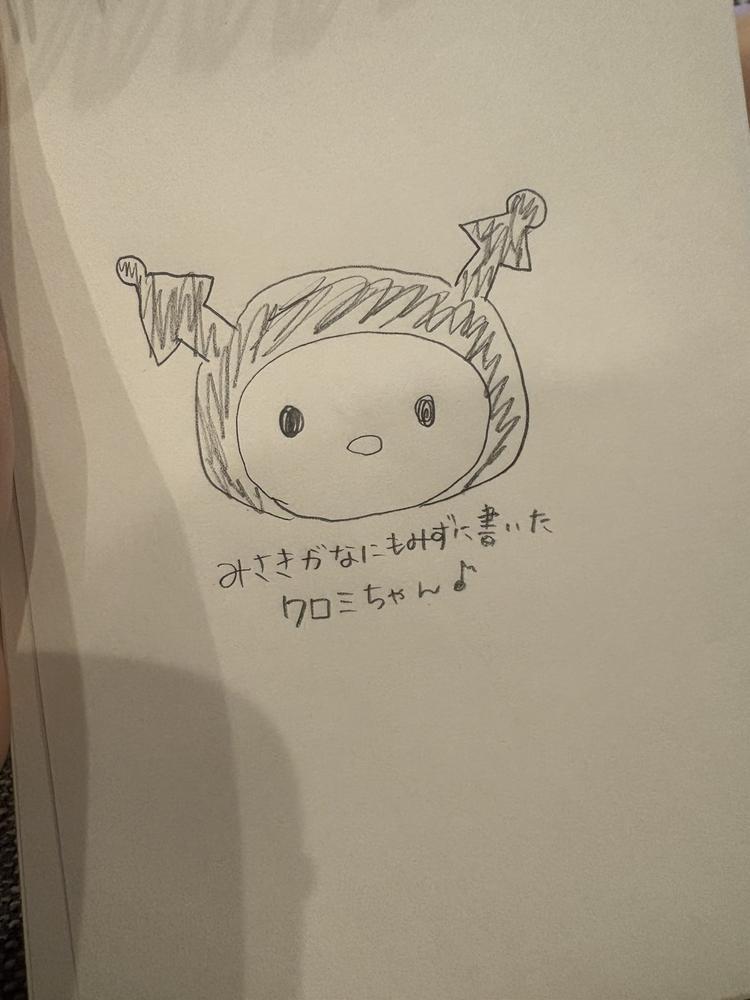 みさきがなにもみずに書いた
クロミちゃん♪